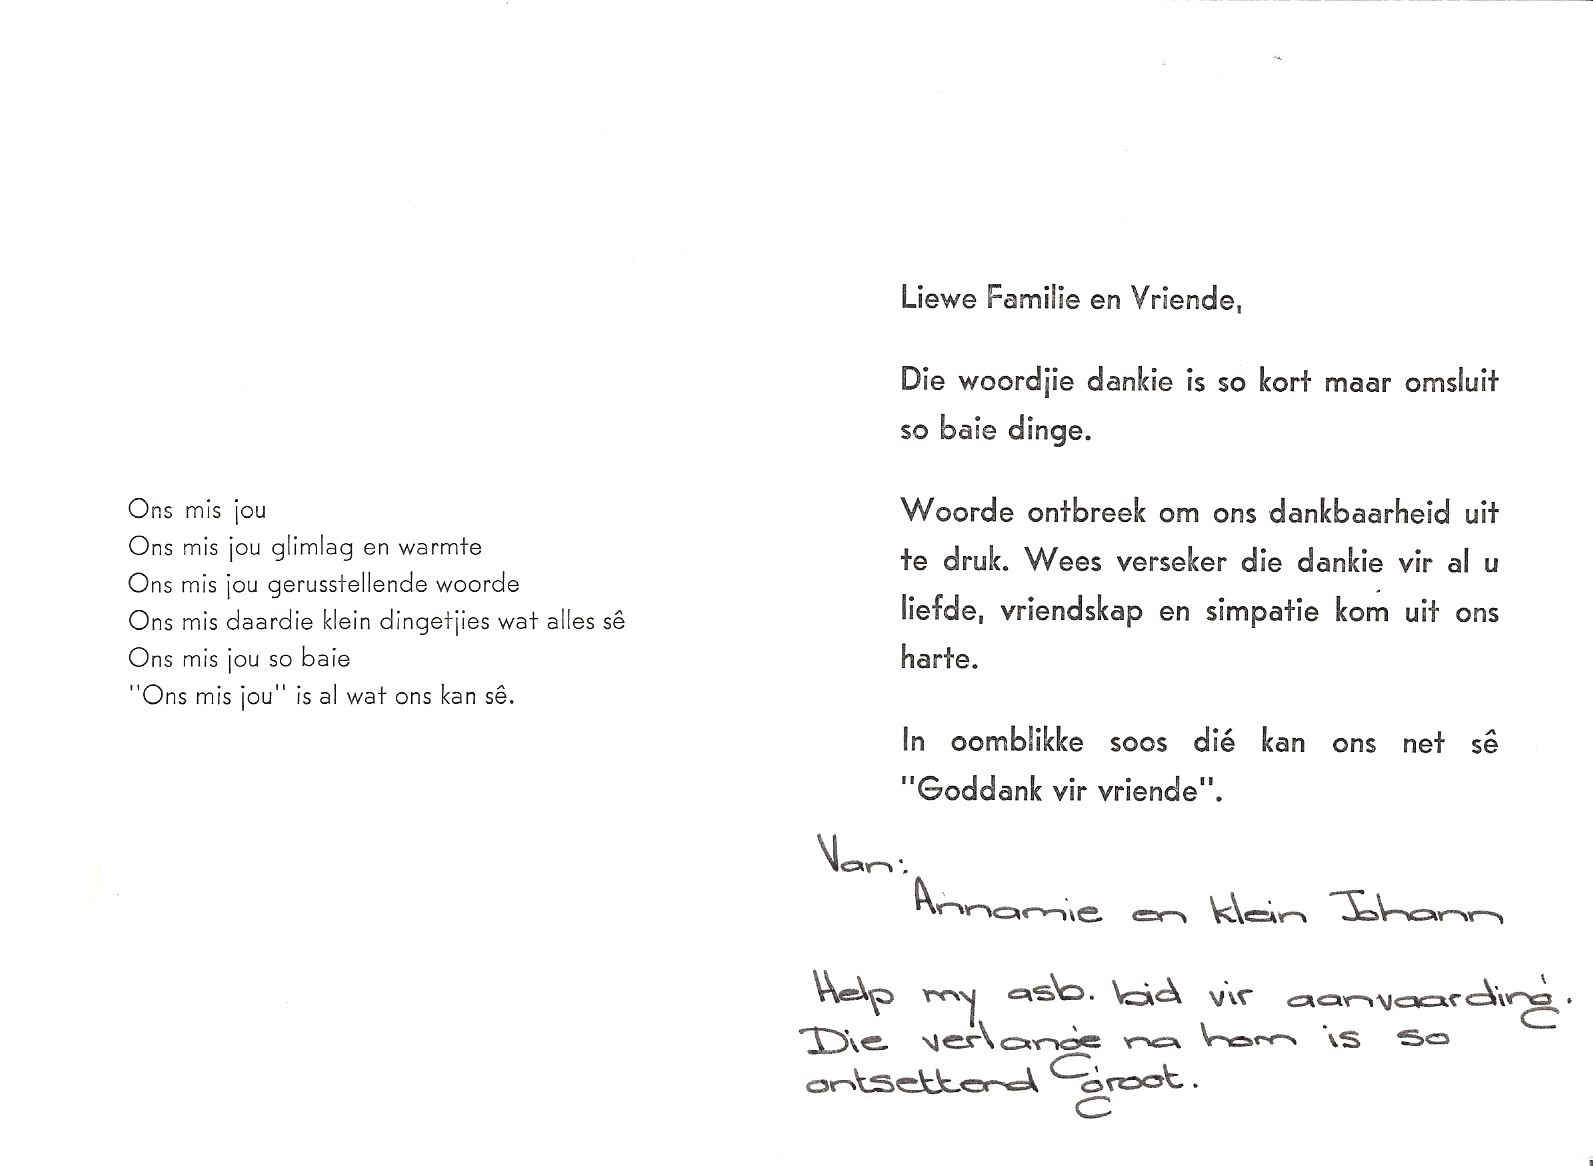 Ons mis jou
Ons mis jou glimlag en warmte
Ons mis jou gerusstellende woorde
Ons mis daardie klein dingetjies wat alles sê
Ons mis jou so baie
"Ons mis jou" is al wat ons kan sê.
Liewe Familie en Vriende,
Die woordjie dankie is so kort maar omsluit
so baie dinge.
Woorde ontbreek om ons dankbaarheid uit
te druk. Wees verseker die dankie vir al u
liefde, vriendskap en simpatie kom uit ons
harte.
In oomblikke soos dié kan ons net sê
"Goddank vir vriende".
Van:
Annamie en klein Johann
Help my asb. bid vir aanvaarding.
Die verlange na hom is so
ontsettend groot.